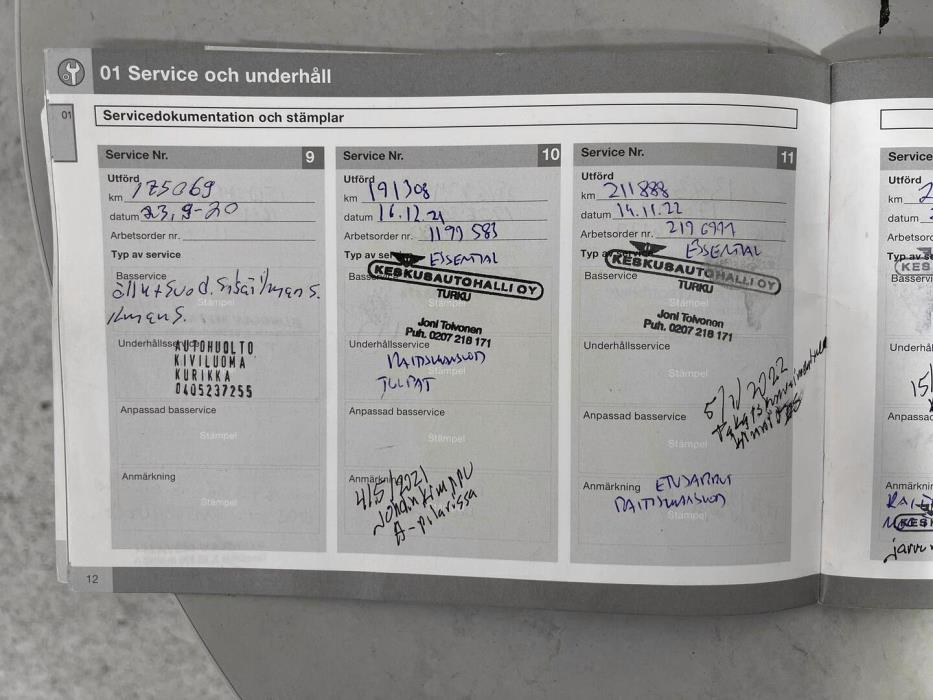 01 Service och underhåll
01
Servicedokumentation och stämplar
Service Nr. 9
Utförd
km 175069
datum 23,9-20
Arbetsorder nr.
Typ av service
Basservice
Stämpel
öljy+suod. Sisäilman S.
ilman S.
Underhållsservice
AUTOHUOLTO
KIVILUOMA
KURIKKA
0405237255
Anpassad basservice
Stämpel
Anmärkning
Stämpel
Service Nr. 10
Utförd
km 191308
datum 16.12.21
Arbetsorder nr. 1199 583
Typ av ser ESSENTIAL
Basservice
KESKUSAUTOHALLI OY
TURKU
Stämpel
Joni Toivonen
Puh. 0207 218 171
Underhållsservice
RAITISILMASUOD
Stämpel
TULPAT
Anpassad basservice
Stämpel
Anmärkning
4/5/2021
A-pilarissa
Service Nr. 11
Utförd
km 211888
datum 14.11.22
Arbetsorder nr.
Typ av service ESSENTIAL
Basservice
KESKUSAUTOHALLI OY
TURKU
Stämpel
Joni Toivonen
Puh. 0207 218 171
Underhållsservice
Stämpel
Anpassad basservice
Stämpel
Anmärkning
RAITISILMASUOD
Stämpel
12
Service
Utförd
km 2
datum
Arbetsor
Typ av se
KES
Underhål
15/
Anpassa
KESK